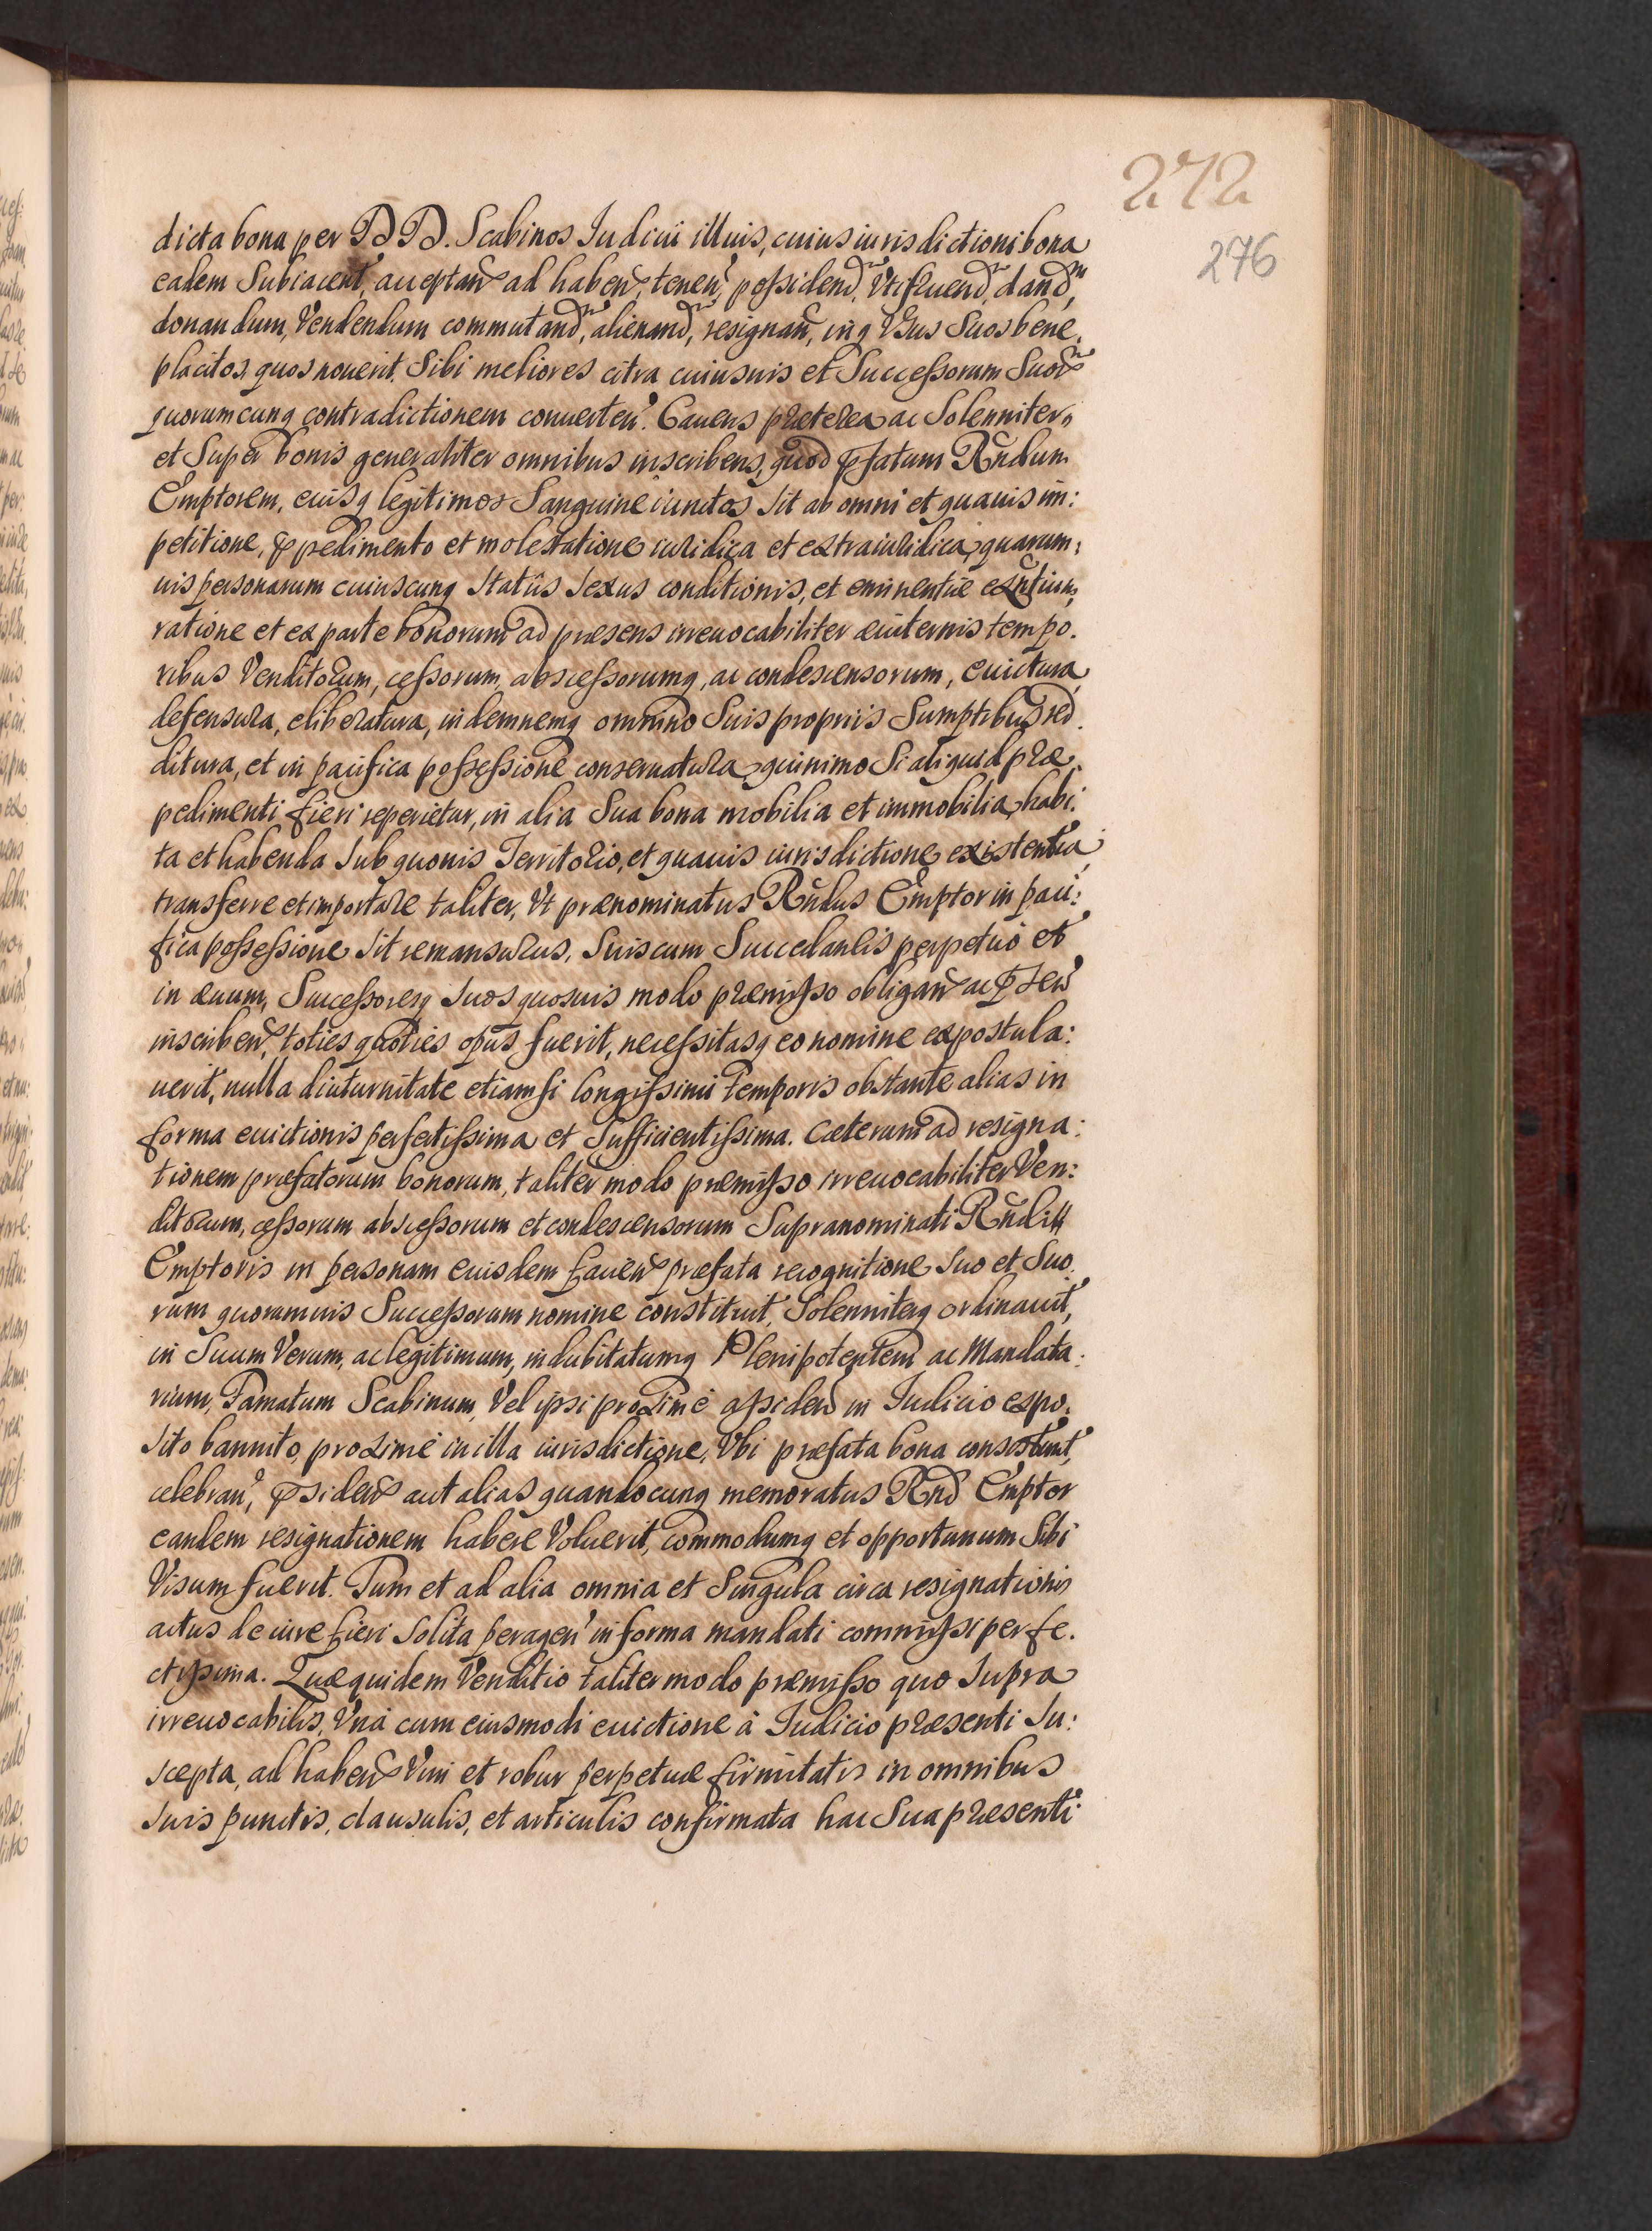 272
276
dicta bona per DD. Scabinos Iudicii illius, cuius iurisdictioni bona
eadem Subiacent, acceptañ ad habeñ, teneñ, possidend, Vtifruend, dand,
donandum, Vendendum commutand, alienand, resignañ, inq Vsus Suos bene
placitos, quos nouerit Sibi meliores citra cuiusuis et Successorum Suor
quorumcunq contradictionem conuerteñ. Cauens præterea ac Solenniter
et Super bonis generaliter omnibus inscribens, quod p̄fatum Rñdum
Emptorem, eiusq legitimos Sanguine iunctos Sit ab omni et quauis im:
petitione, p̄pedimento et molestatione iuridica et extraiuridica, quarum:
uis personarum cuiuscunq Statûs Sexus conditionis, et eminentiæ exñtium,
ratione et ex parte bonorum ad præsens irreuocabiliter æuiternis tempo.
ribus Venditorum, cessorum, abscessorumq, ac condescensorum, euictura,
defensura, eliberatura, indemnemq omnino Suis propriis Sumptibus red.
ditura, et in pacifica possessione conseruatura, quinimo Si aliquid præ.
pedimenti fieri reperietur, in alia Sua bona mobilia et immobilia, habi.
ta et habenda Sub quouis Territorio, et quauis iurisdictione existentia,
transferre et importare taliter, Vt prænominatus Rñdus Emptor in paci:
fica possessione Sit remansurus, Suis cum Succedaneis perpetuò et
in æuum, Successoresq Suos quosuis modo præmisso obligañ ac p̄señ
inscribeñ, toties quoties opus fuerit, necessitasq eo nomine expostula:
uerit, nulla diuturnitate etiamsi longissimi Temporis obstante alias in
forma euictionis perfectissima et Sufficientissima. Cæterum ad resigna:
tionem præfatorum bonorum, taliter modo præmisso irreuocabiliter Ven:
ditorum, cessorum abscessorum et condescensorum Supranominati Rñdi
Emptoris in personam eiusdem facieñ præfata recognitione Suo et Suo.
rum quorumuis Successorum nomine constituit, Solenniterq ordinauit,
in Suum Verum, ac legitimum, indubitatumq Plenipotentem ac Mandata:
rium, Famatum Scabinum, Vel ipsi proximè assideñ in Iudicio expo.
Sito bannito, proximè in illa iurisdictione, Vbi præfata bona consistunt,
celebrañ, p̄sideñ aut alias quandocunq memoratus Rnd Emptor
eandem resignationem habere Voluerit, commodumq et opportunum Sibi
Visum fuerit. Tum et ad alia omnia et Singula circa resignationis
actus de iure fieri Solita perageñ in forma mandati commissi perfe.
ctissima. Quæ quidem Venditio taliter modo præmisso quo Supra
irreuocabilis, Vnà cum eiusmodi euictione à Iudicio præsenti Su:
scepta, ad habeñ Vim et robur perpetuæ firmitatis in omnibus
Suis punctis, clausulis, et articulis confirmata hac Sua præsenti